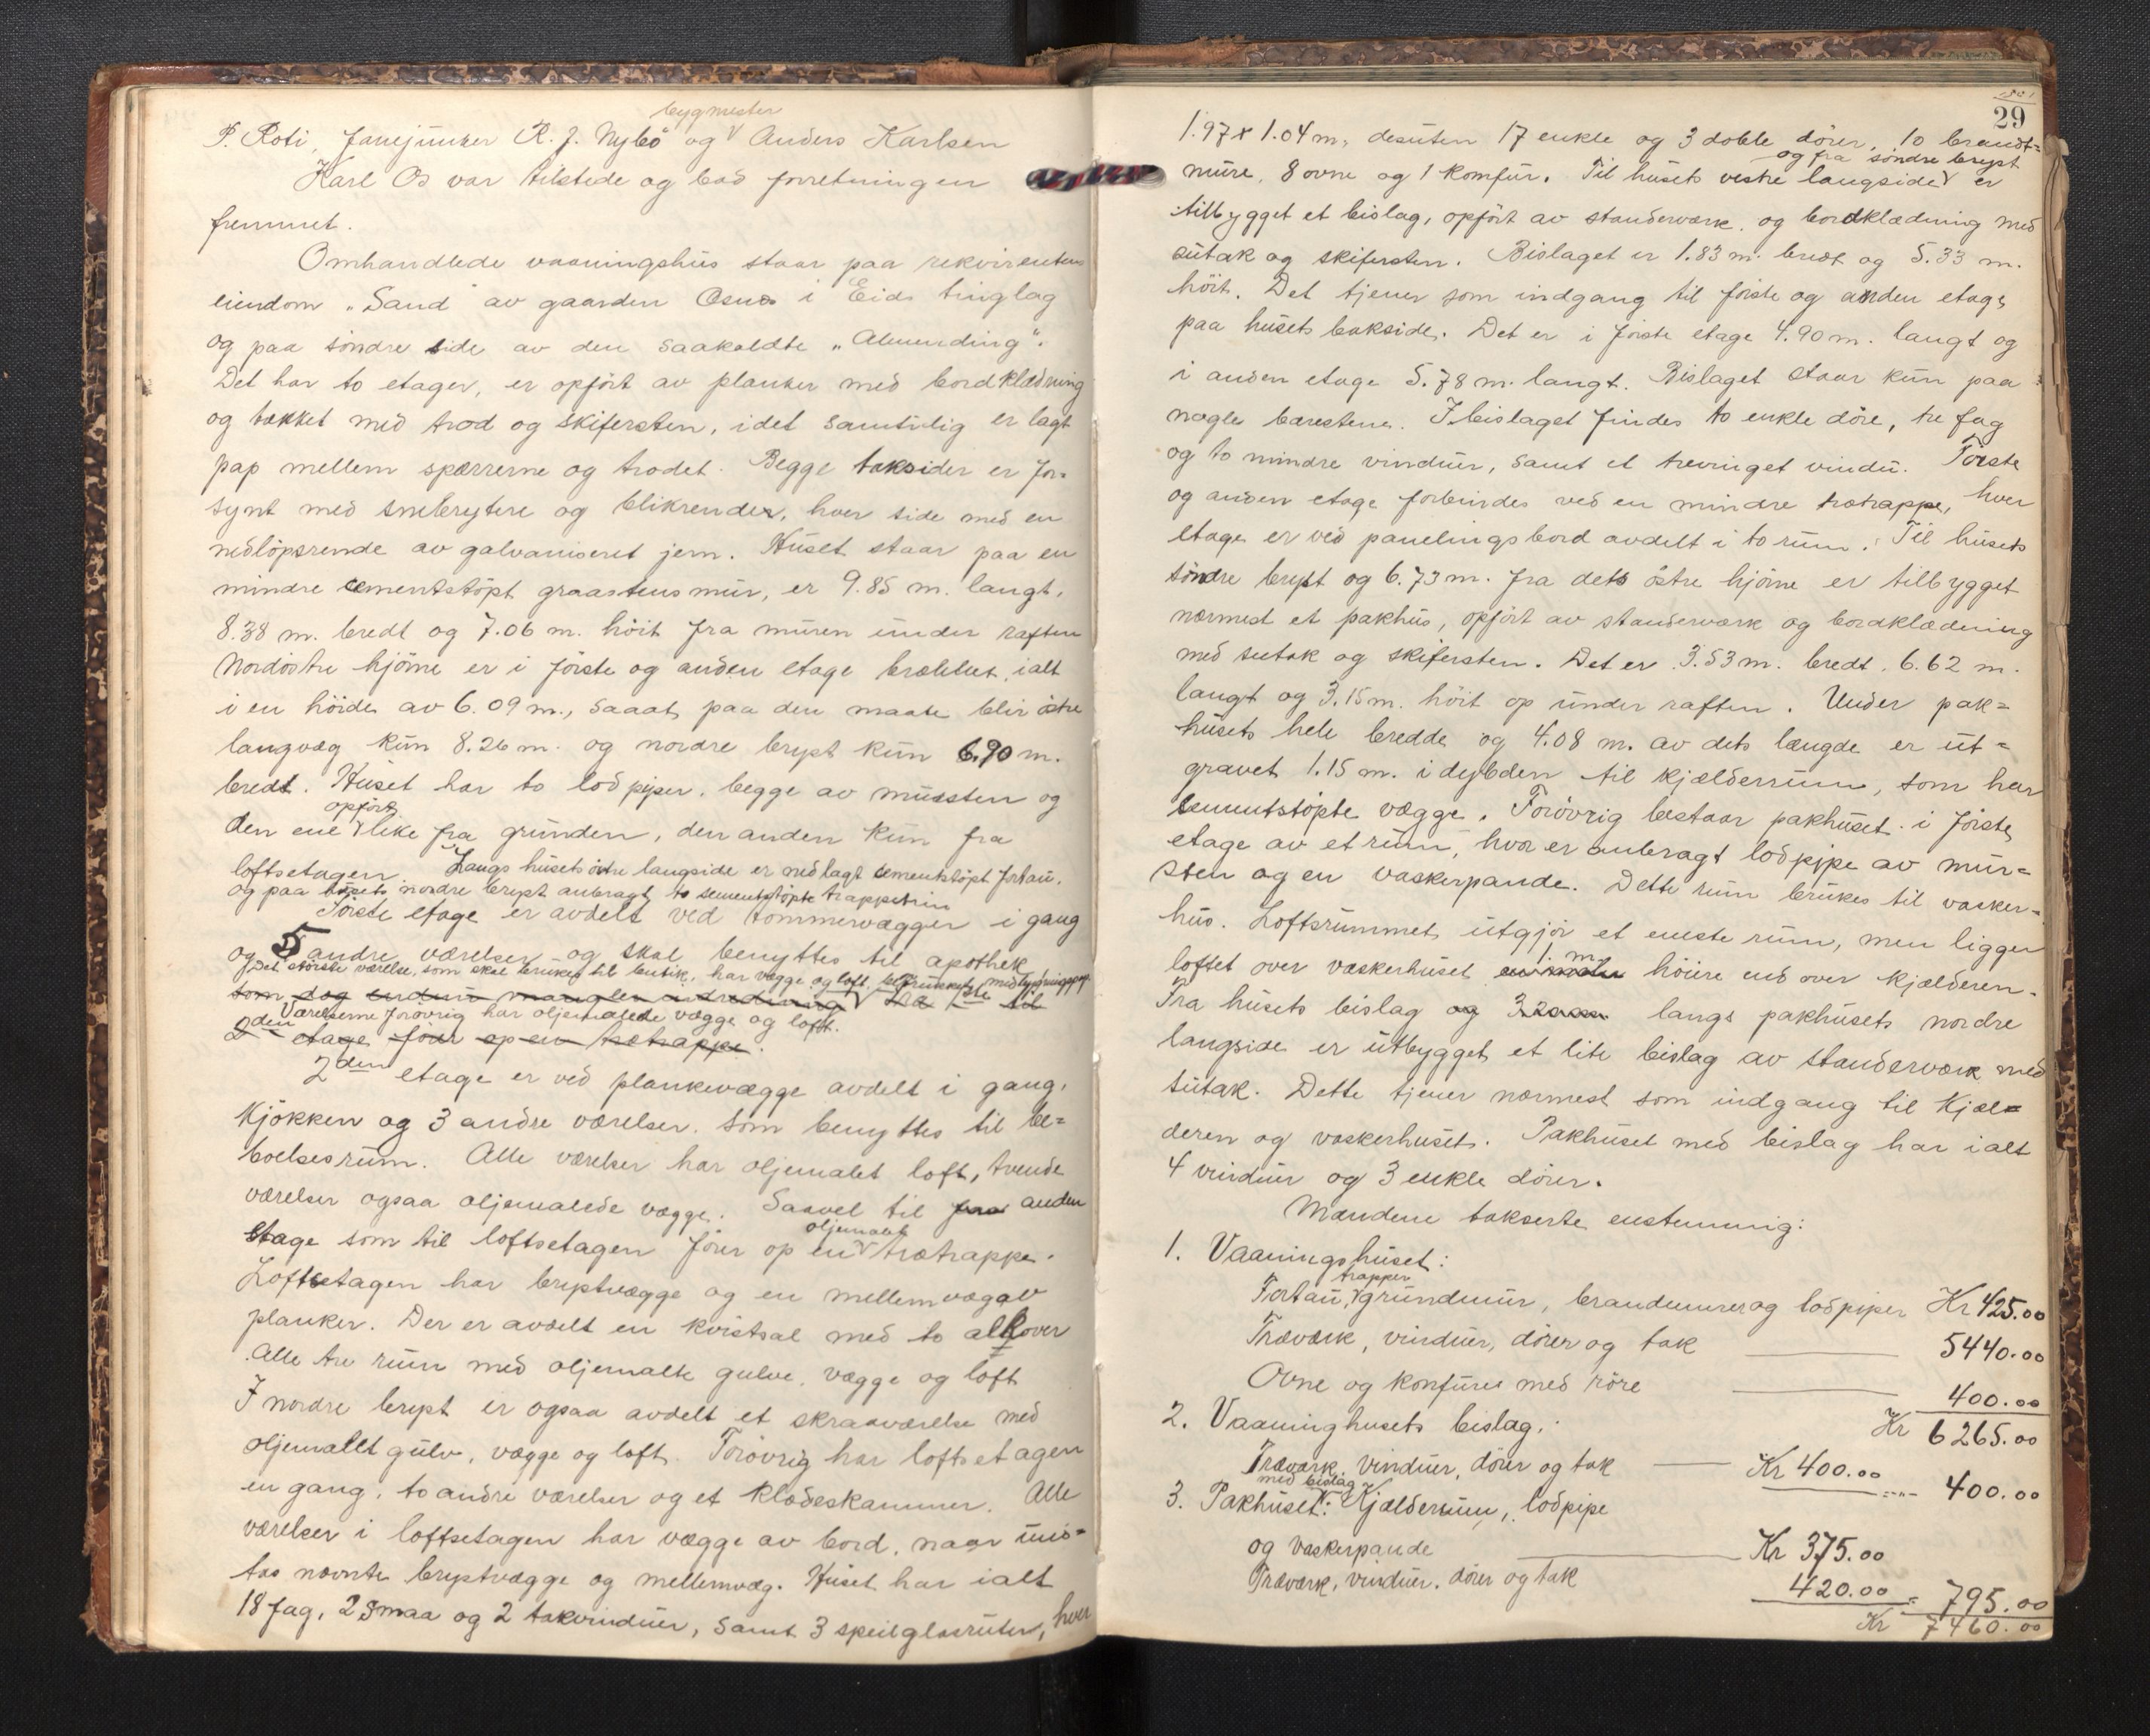 bygmester
P. Roti, Janejunker R. J. Nybö og Anders Karlsen
Karl Os var tilstede og bad forretningen
fremmet.
Omhandlede vaaningshus staar paa rekvirentens
eiendom "Sand" av gaarden Osnes i Eids tinglag
og paa söndre side av den saakaldte "Almending".
Det har to etager, er opfört av planker med bordklædning
og tækket med trod og skifersten, idet samtidig er lagt
pap mellem spærrerne og trodet. Begge taksider er for-
synt med snebrytere og blikrender, hver side med en
nedlöpsrende av galvaniseret jern. Huset staar paa en
mindre cementstöpt graastensmur, er 9.85 m. langt,
8.38 m. bredt og 7.06 m. höit fra muren under raften
Nordöstre hjörne er i förste og anden etage brækket, ialt
i en höide av 6.09 m., saaat paa den maate blir östre
langvæg kun 8.26 m. og nordre bryst kun 6.90 m.
bredt. Huset har to lodpiper, begge av mursten og
opfört
den ene like fra grunden, den anden kun fra
loftsetagen. Langs husets östre langside er nedlagt cementstöpt fortau,
og paa husets nordre bryst anbragt to sementstöpte trappetrin
Förste etage er avdelt ved tömmervægger i gang
og 5 andre værelser og skal benyttes til apothek
Det störste værelse, som skal brukes til butik, har vægge og loft
som dog endnu mangler indredning Fra 1ste til
Værelserne forövrig har oljemalede vægge og loft.
2den etage förer op en trætrappe.
2den etage er ved plankevægge avdelt i gang,
kjökken og 3 andre værelser, som benyttes til be-
boelsesrum. Alle værelser har oljemalet loft, tvende
værelser ogsaa oljemalede vægge. Saavel til fra anden
oljemalet
etage som til loftsetagen förer op en trætrappe.
Loftsetagen har brystvægge og en mellemvæg av
planker. Der er avdelt en kvistsal med to alkover
Alle tre rum med oljemalte gulve, vægge og loft
I nordre bryst er ogsaa avdelt et skraaværelse med
oljemallt gulv, vægge og loft. Forövrig har loftsetagen
en gang, to andre værelser og et klædeskammer. Alle
værelser i loftsetagen har vægge av bord, naar und-
tas nævnte brystvægge og mellemvæg. Huset har ialt
18 fag, 2 smaa og 2 takvinduer, samt 3 speilglasruter, hver
29
1.97 x 1.04 m, desuten 17 enkle og 3 doble dörer, 10 brandt-
og fra söndre bryst
mure, 8 ovne og 1 komfur. Til husets vestre langside er
tilbygget et bislag, opfört av standerværk og bordklædning med
sutak og skifersten. Bislaget er 1.83 m. bredt og 5.33 m.
höit. Det tjener som indgang til förste og anden etage
paa husets bakside. Det er i förste etage 4.90 m. langt og
i anden etage 5.78 m. langt. Bislaget staar kun paa
nogle bærestene. I bislaget findes to enkle döre, tre fag
og to mindre vinduer, samt et trevinget vindu. Förste
og anden etage forbindes ved en mindre trætrappe, hver
etage er ved panelingsbord avdelt i to rum. Til husets
söndre bryst og 6.73 m. fra dets östre hjörne er tilbygget
nærmest et pakhus, opfört av standerværk og bordklædning
med sutak og skifersten. Det er 3.53 m. bredt, 6.62 m.
langt og 3.15 m. höit op under raften. Under pak-
husets hele bredde og 4.08 m. av dets længde er ut-
gravet 1.15 m. i dybden til kjælderrum, som har
sementstöpte vægge. Forövrig bestaar pakhuset i förste
etage av et rum, hvor er anbragt lodpipe av mur-
sten og en vaskerpande. Dette rum brukes til vasker-
hus. Loftsrummet utgjör et eneste rum, men ligger
1 m.
loftet over vaskerhuset höiere end over kjælderen.
Fra husets bislag og langs pakhusets nordre
langside er utbygget et lite bislag av standerværk med
sutak. Dette tjener nærmest som indgang til kjæl-
deren og vaskerhuset. Pakhuset med bislag har ialt
4 vinduer og 3 enkle dörer.
Mændene takserte enstemmig:
1. Vaaningshuset:
trapper
Fortau, grundmur, brandmurer og lodpiper Kr 425.00
Træværk, vinduer, dörer og tak 5440.00
Ovne og konfurer med röre 400.00
Kr 6265.00
2. Vaaninghusets bislag:
Træværk, vinduer, dörer og tak Kr 400.00 400.00
med bislag
3. Pakhuset: Kjælderrum, lodpipe
og vaskerpande Kr 375.00
Træværk, vinduer, dörer og tak 420.00 = 795.00
Kr 7460.00